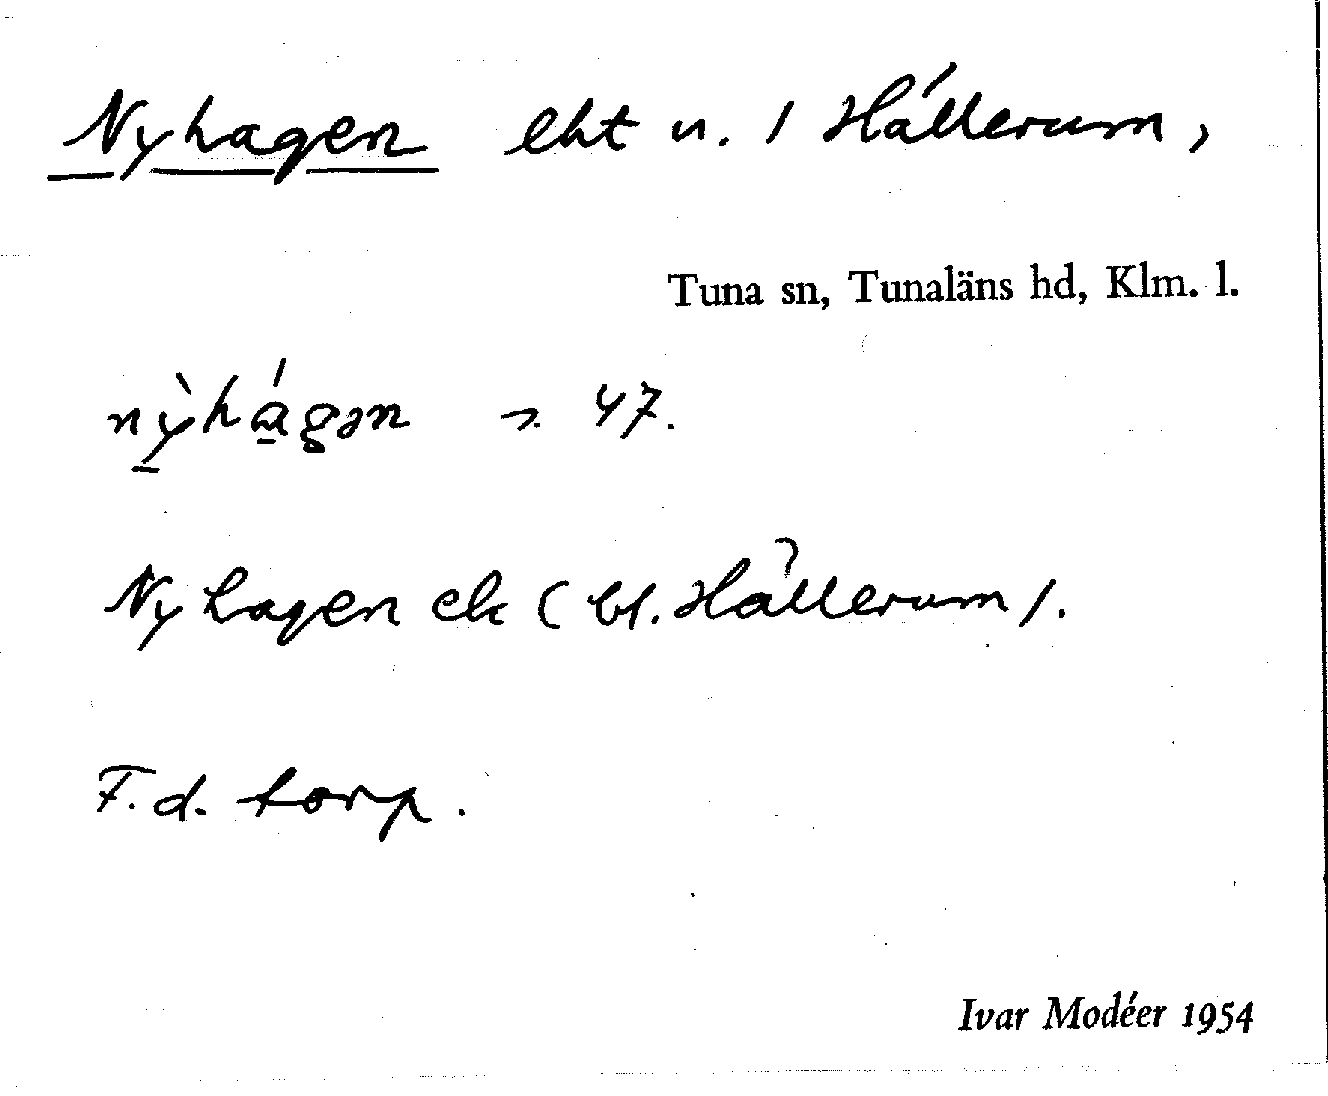 Nyhagen lht u. / Hällerum,
Tuna sn, Tunaläns hd, Klm. l.
nỳhágən 47.
Nyhagen ek (bl. Hällerum).
F.d. torp.
Ivar Modéer 1954